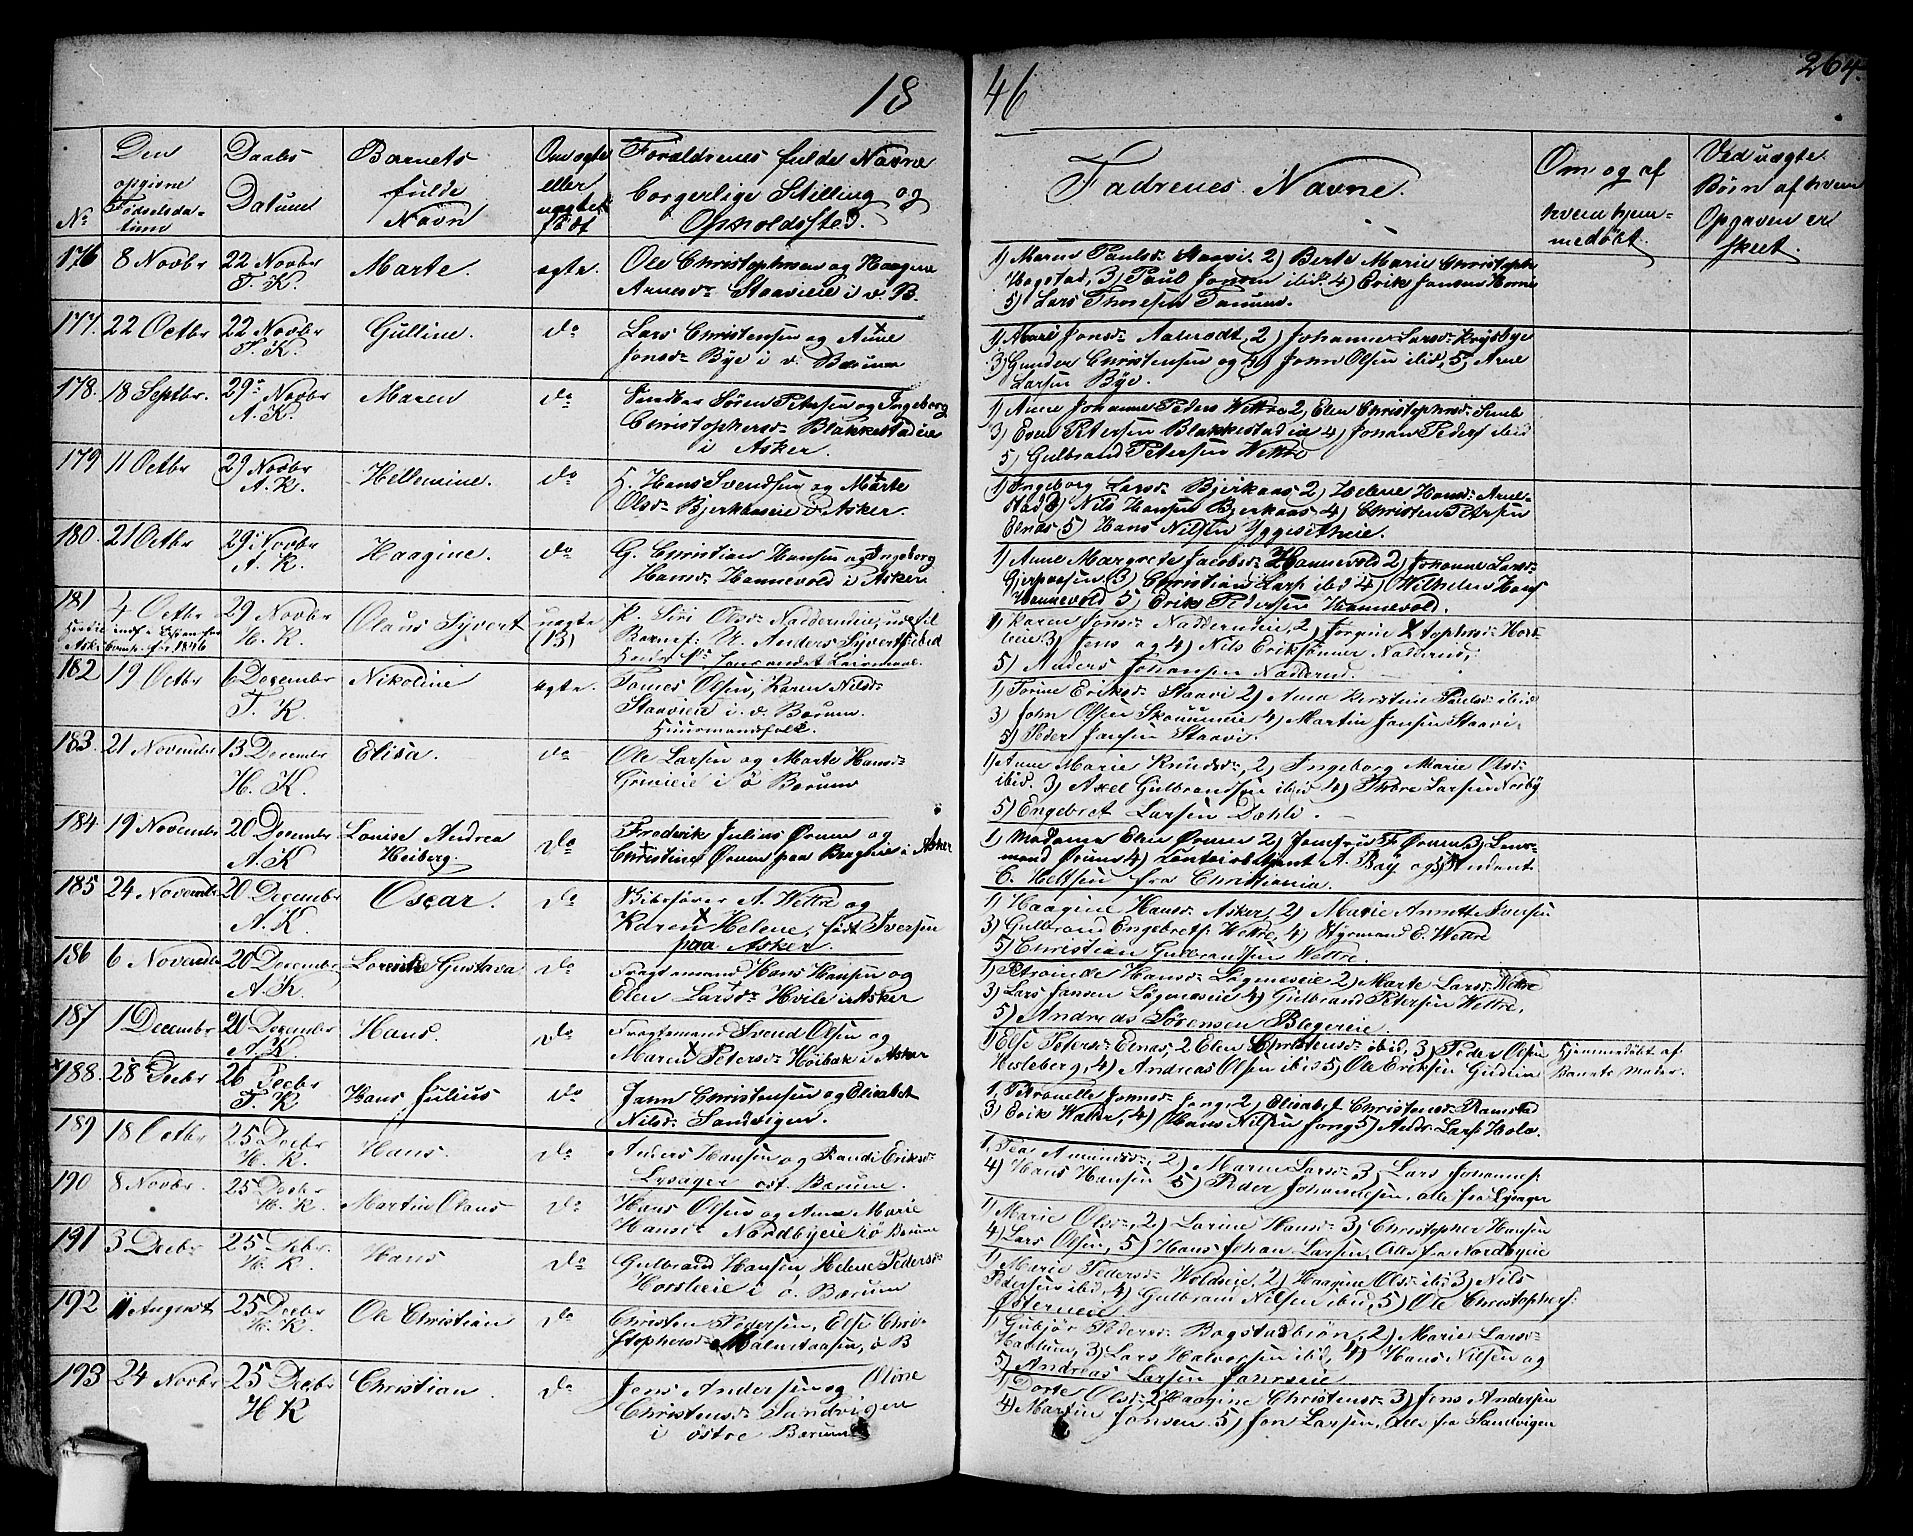 18 46
264.
No
Den opgivne Fødselsdatum
Daabs Datum
Barnets fulde Navn
Om ægte eller uægte født
Forældrenes fulde Navne Borgerlige Stilling og Opholdssted.
Fadrenes Navne.
Om og af hvem hjemmedøbt.
Ved uægte Børn af hvem Opgaven er skeet.
176 8 Novbr 22 Novbr Marte. ægte. Ole Christophersen og Haagine
T. K. Arnesdr Staavieie i v. B.
1) Maren Paulsdr Staavi. 2) Berte Marie Christophr
Hogstad, 3) Paul Jonsen ibid. 4) Erik Jansen Horne
5) Lars Thoresen Tanum.
177. 22 Octbr 22 Novbr Gulline. do Lars Christensen og Anne
T. K. Jonsdr Bye i v. Bærum
1) Mari Jonsdr 2) Johanne Larsdr
3) Gunder Christensen og 4) John Olsen ibid, 5) Arne
Larsen Bye.
178. 18 Septbr. 29 Novbr Maren do Søren Petersen og Ingeborg
A. K. Christophersdr Blakkestadeie
i Asker.
1) Anne Johanne Peders Wettre 2, Elen Christophrsdr
3) Even Petersen Blakkestadeie 4) Johan Peders ibid
5) Gulbrand Petersen Wettre
179 11 Octbr 29 Novbr Hellemine. do G. Hans Svendsen og Marte
A. K. Olsdr Bjerkaaseie i Asker.
1) Ingeborg Larsdr Bjerkaas 2) Helene Hansdr Arnestad
3) Nils Hansen Bjerkaas 4) Christen Petersen
Elnæs 5) Hans Nilsen
180. 21 Octbr 29 Novbr Haagine. do G. Christian Hansen og Ingeborg
A. K. Hansdr Hannevold i Asker
1) Anne Margrete Jacobsdr Hannevold 2) Johanne Larsdr
3) Christian Lars ibid 4) Wilhelm Hans
Hannevold 5) Erik Pedersen Hannevold.
181 4 Octbr 29 Novbr Olaus Syvert uægte P. Siri Olsdr Nadderudeie,
H. K. (13) Barnef: U. Anders Syvertsen ibid
1) Karen Jonsdr Nadderudeie, 2) Jorgine
3) Jens og 4) Nils Eriksønner Nadderud,
5) Anders Johansen Nadderud
182 19 Octbr 6 Decembr Nikoline ægte. Tomes Olsen, Karen Nilsdr
T. K. Staavieie i v. Bærum.
Huusmandsfolk.
1) Torine Eriksdr Staavi 2) Anne Kerstine Paulsdr ibid
3) John Olsen 4) Martin Jansen Staavi.
5) Peder Jansen Staavi.
183. 21 Novembr 13 Decembr Elisa. do Ole Larsen og Marte Hansdr
H. K. Grinieie i ø Bærum
1) Anne Marie Knudsdr, 2) Ingeborg Marie Olsdr
ibid. 3) Axel Gulbrandsen ibid 4) Thore Larsen Nordby
5) Engebret Larsen Dæhli.
184 19 Novembr 20 Decembr Louise Andrea do Frederik Julius Ørum og
A. K Heiberg. Christine Ørum paa i Asker
1) Madame Elen Ørum 2) Jomfrue F. Ørum 3) Lensmand
Ørum 4) A. Bay og 5) Student
C. Heltsen fra Christiania.
185 24 Novembr 20 Decembr Oscar. do A. Wettre og
A. K. Karen Helene, født Iversen
paa Asker.
1) Haagine Hansdr Asker, 2) Marie Annette Iversen
3) Gulbrand Engebrets: Wettre, 4) Styrmand E. Wettre
5) Christian Gulbrandsen Wettre.
186 6 Novembr 20 Decembr Gustava do Fragtemand Hans Hansen og
A. K. Elen Larsdr Hvile i Asker
1) Hansdr Løgneseie 2) Marte Larsdr Wettre
3) Lars Jansen Løgneseie 4) Gulbrand Petersen Wettre,
5) Andreas Sørensen
187 1 Decembr 20 Decembr Hans. do Fragtemand Svend Olsen og
A. K. Maren Petersdr Høibak i Asker
1) Else Petersdr Elnæs, 2 Elen Christensdr ibid, 3) Peder Olsen
4) Andreas Olsen ibid 5) Ole Eriksen
Hjemmedøbt af
Barnets Moder.
188. 28 Decbr 26 Decbr Hans Julius do Jann Christensen og Elisabet
T. K. Nilsdr Sandvigen.
1, Petronelle Jonnsdr Jong, 2) Elisabet Christensdr Ramstad
3) Erik Walter, 4) Hans Nilsen Jong 5) Andr. Lars: Holo.
189 18 Octbr 25 Decbr Hans. do Anders Hansen og Randi Eriksdr
H. K. Lysager øst. Bærum.
1, Amundsdr, 2) Maren Larsdr 3) Lars Johannes:
4) Hans Hansen 5) Peder Johannesen, alle fra Lysager
190 8 Novbr. 25 Decbr Martin Olaus do Hans Olsen og Anne Marie
H. K. Hansdr Nordbyeie i ø Bærum
1) Marie Olsdr, 2) Larine Hansdr 3) Christopher Hansen
4) Lars Olsen, 5) Hans Johan Larsen, Alle fra Nordbyeie
191 3 Decbr 25 Decbr. Hans do Gulbrand Hansen Helene Pedersdr
H. K. Horslieie i ø. Bærum
1) Marie Pedersdr 2) Haagine Olsdr ibid 3) Nils
Pedersen ibid, 4) Gulbrand Nilsen ibid, 5) Ole Christophers:
Østerneie
192 11 August 25 Decbr Ole Christian do Christen Pedersen, Else Chri-
H. K. stophersdr i ø B
1) Gubjør Pedersdr 2) Marie Larsdr
3) Lars Halvorsen ibid, 4) Hans Nilsen og
5) Andreas Larsen
193 24 Novbr 25 Decbr Christian do Jens Andersen og Oline
H. K Christensdr Sandvigen
i østre Bærum
1) Dorte Olsdr 2) Haagine Christensdr 3) Jens Andersen
4) Martin Jonsen 5) Jon Larsen, Alle fra Sandvigen